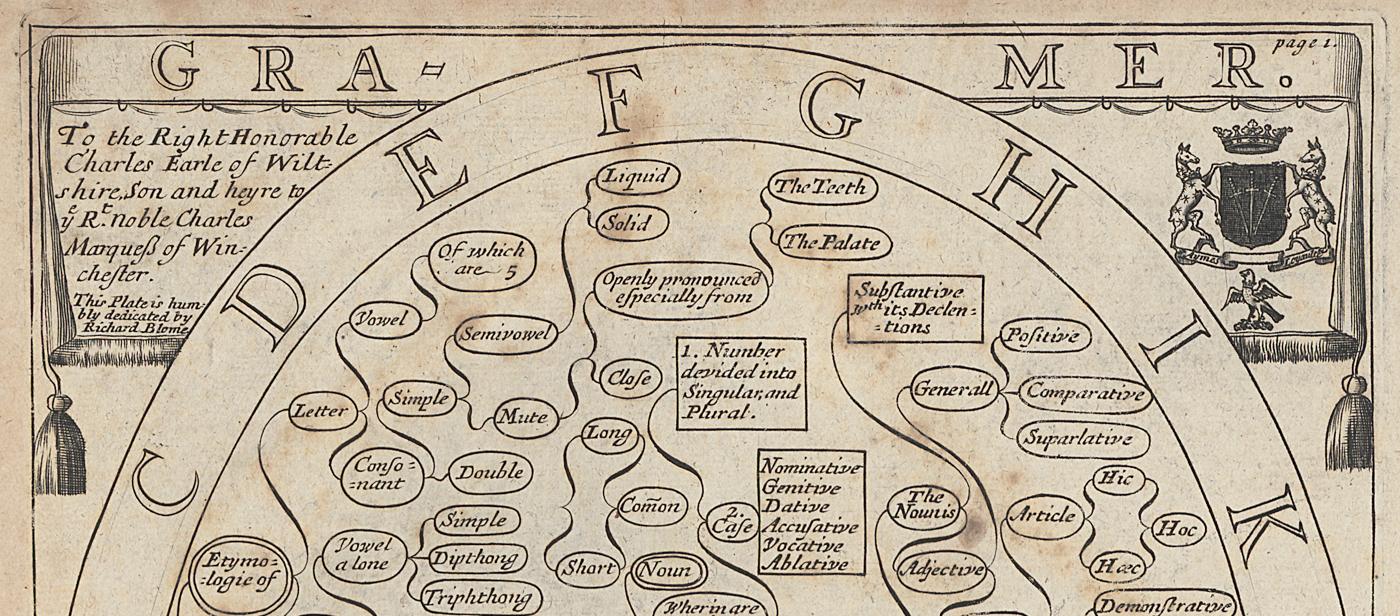 GRA=
MER.
page 1.
C D E F G H I K
To the Right Honorable
Charles Earle of Wilt=
shire, Son and heyre to
yᵉ Rᵗ. noble Charles
Marqueß of Win=
chester.
This Plate is hum=
bly dedicated by
Richard Blome
Aymes Loyaulte
Liquid
Solid
The Teeth
The Palate
Of which
are 5
Openly pronounced
especially from
Substantive
wᵗʰ its Declen=
=tions
Vowel
Semivowel
Positive
1. Number
devided into
Singular, and
Plural.
Close
Generall
Comparative
Simple
Letter
Mute
Suparlative
Long
Conso=
=nant
Double
Nominative
Genitive
Dative
Accusative
Vocative
Ablative
Hic
Com̃on
The
Noun is
Article
2.
Case
Simple
Hoc
Vowel
a lone
Dipthong
Etymo=
=logie of
Short
Noun
Adjective
Hæc
Triphthong
Wherin are
Demonstrative